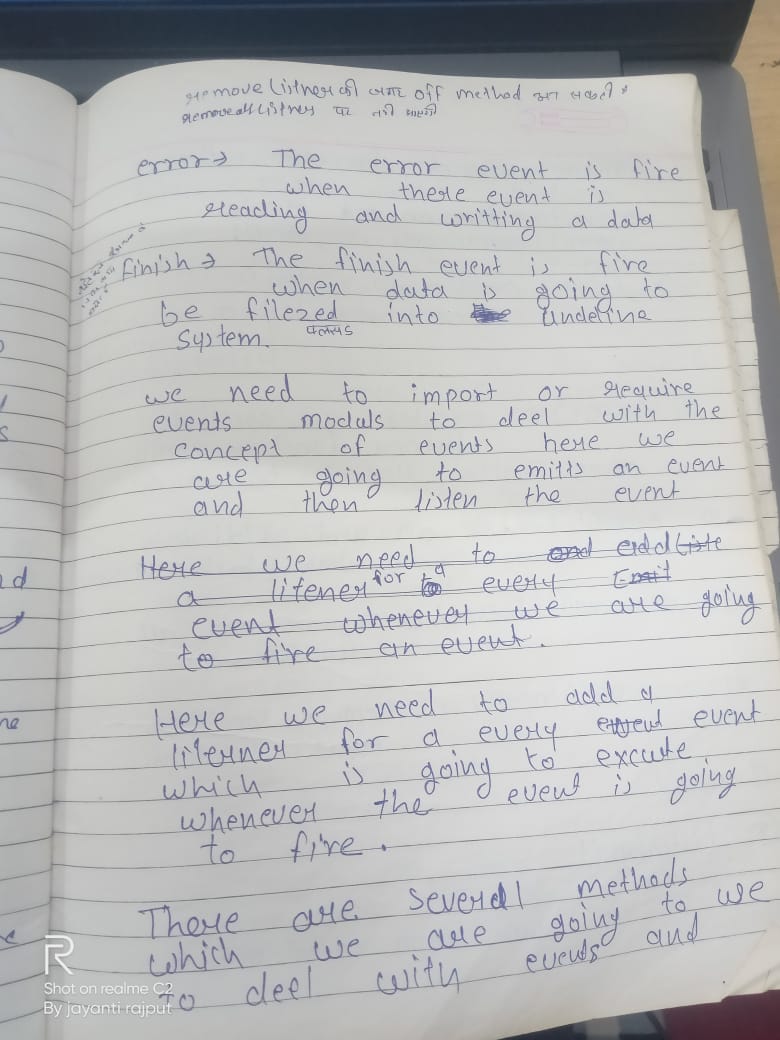 removeListner की जगह off method
removeallListner पर नही
error→ The error event is fire
when there event is
reading and writting a data
finish→ The finish event is fire
when data is going to
be filezed into undeline
system.
we need to import or require
events moduls to deel with the
concept of events here we
are going to emitts an event
and then listen the event
Here we need to and addListe
a litener for a every Emit
event whenever we are going
to fire an event.
Here we need to add a
literner for a every event event
which is going to excute
whenever the event is going
to fire.
There are severall methods
which we are going to we
to deel with events and
R
Shot on realme C2
By jayanti rajput